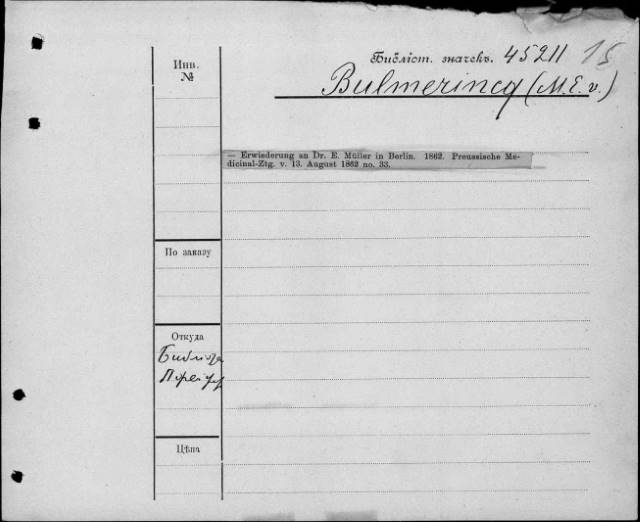 Инв.
№
Библіот. значекъ. 45211 15
Bulmerincq (M. E. v.)
— Erwiederung an Dr. E. Müller in Berlin. 1862. Preussische Me-
dicinal-Ztg. v. 13. August 1862 no. 33.
По заказу
Откуда
Цѣна